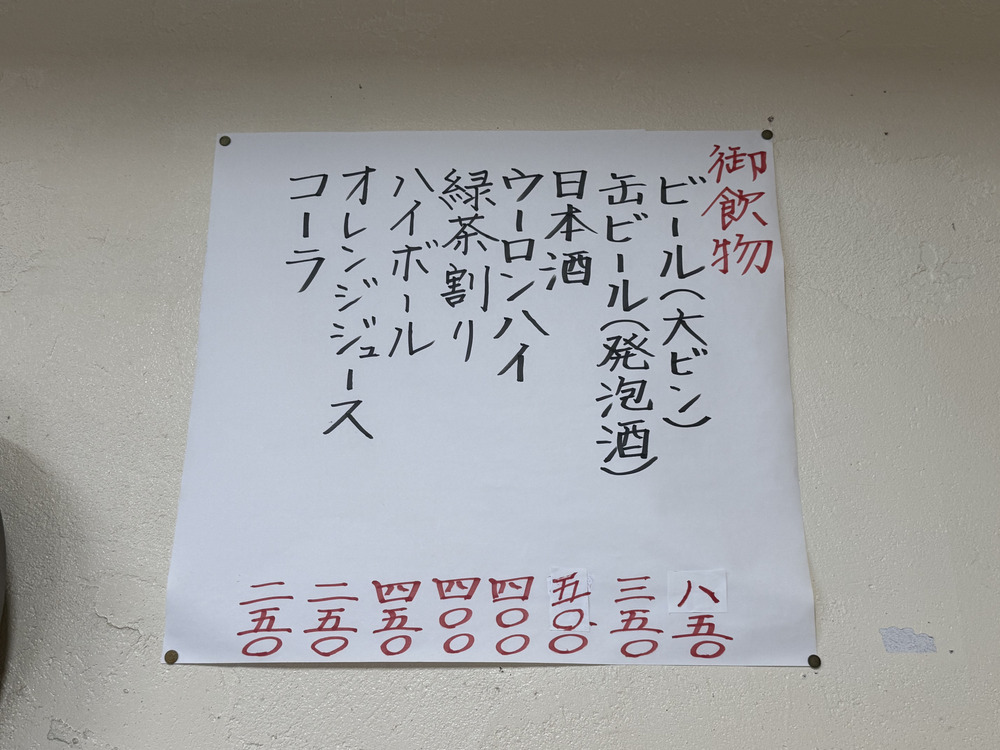 御飲物
ビール(大ビン) 八五〇
缶ビール(発泡酒) 三五〇
日本酒 五〇〇
ウーロンハイ 四〇〇
緑茶割り 四〇〇
ハイボール 四五〇
オレンジジュース 二五〇
コーラ 二五〇